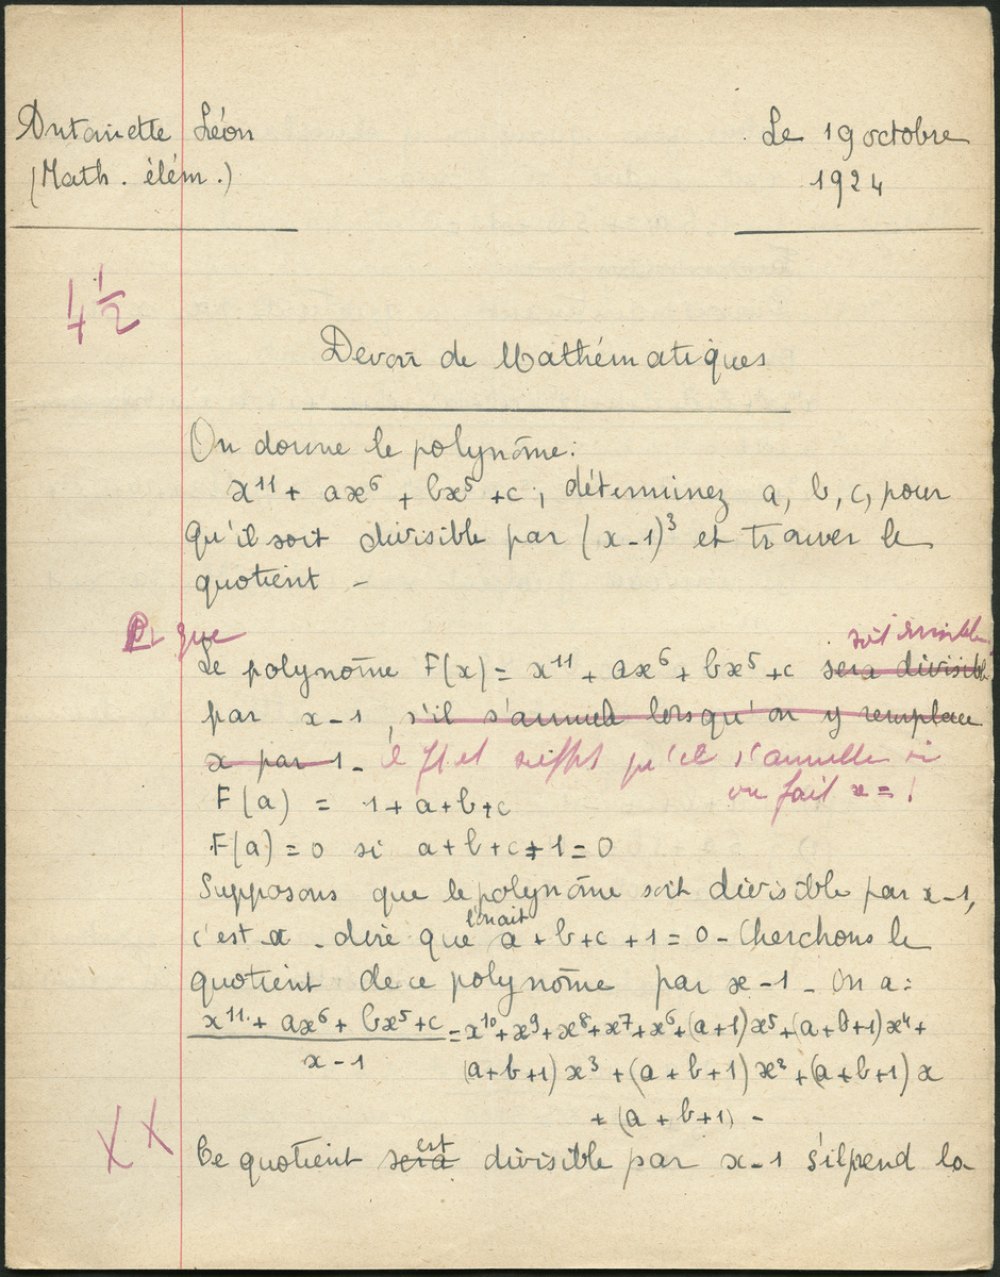 Antoinette Léon
Le 19 octobre
(Math. élém.)
1924
4 1/2
Devoir de Mathématiques
On donne le polynôme:
x¹¹ + ax⁶ + bx⁵ + c ; déterminez a, b, c, pour
qu'il soit divisible par (x-1)³ et trouver le
quotient -
Pr que
soit divisible
Le polynôme F(x) = x¹¹ + ax⁶ + bx⁵ + c sera divisible
par x-1, s'il s'annule lorsqu'on y remplace
x par 1 - il f et suffit qu'il s'annulle si
on fait x = 1
F(a) = 1 + a+b+c
F(a) = 0 si a+b+c+1 = 0
Supposons que le polynôme soit divisible par x-1,
l'on ait
c'est a - dire que a+b+c+1 = 0 - Cherchons le
quotient de ce polynôme par x-1 - On a :
x¹¹ + ax⁶ + bx⁵ + c = x¹⁰ + x⁹ + x⁸ + x⁷ + x⁶ + (a+1)x⁵ + (a+b+1)x⁴ +
x-1 (a+b+1)x³ + (a+b+1)x² + (a+b+1)x
+ (a+b+1) -
X X
est
Ce quotient sera divisible par x-1 s'il pend la